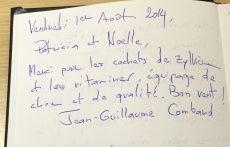 Vendredi 1er Août 2014,
Patricia et Noelle,
Merci pour les cachets de Zyllium
et les vitamines, équipage de
choc et de qualité. Bon vent !
Jean-Guillaume Combaud